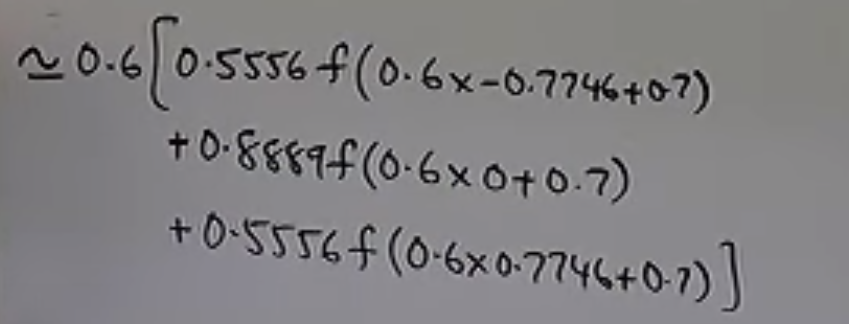 ≃ 0.6[0.5556 f(0.6x-0.7746+0.7)
+0.8889f(0.6×0+0.7)
+0.5556 f(0.6×0.7746+0.7)]